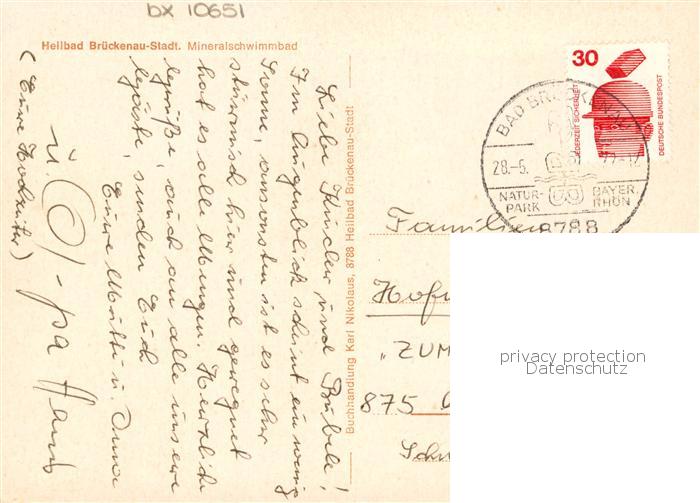 bx 10651
Heilbad Brückenau-Stadt. Mineralschwimmbad
Liebe Kinder und Bubele!
Im Augenblick scheint ein wenig
Sonne, ansonsten ist es sehr
stürmisch hier und geregnet
hat es alle Mengen. Herzliche
Grüße, auch an alle unsere
Gäste, senden Euch
Eure Mutti u.
u. Opa Hans
(Eure Hochzeiter)
Buchhandlung Karl Nikolaus, 8788 Heilbad Brückenau-Stadt
30
JEDERZEIT SICHERHEIT
DEUTSCHE BUNDESPOST
BAD BRÜCKENAU
28.-5.
NATUR-
PARK
BAYER.
RHÖN
8788
Familien
"ZUM
875
privacy protection
Datenschutz